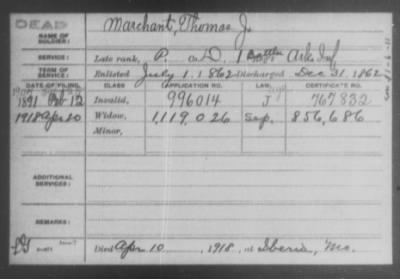 DEAD
NAME OF SOLDIER: Marchant, Thomas J.
SERVICE: Late rank, P. Co. D, 1 Battn Ark Inf
TERM OF SERVICE: Enlisted July 1, 1862 Discharged Dec 31, 1862
DATE OF FILING. CLASS. APPLICATION NO. LAW. CERTIFICATE NO.
1891 Feb 12 Invalid, 996014 J 767832
1918 Apr 20 Widow, 1,119,026 Sep. 856,686
Minor,
ADDITIONAL SERVICES:
REMARKS:
Died Apr 10, 1918, at Iberia, Mo.